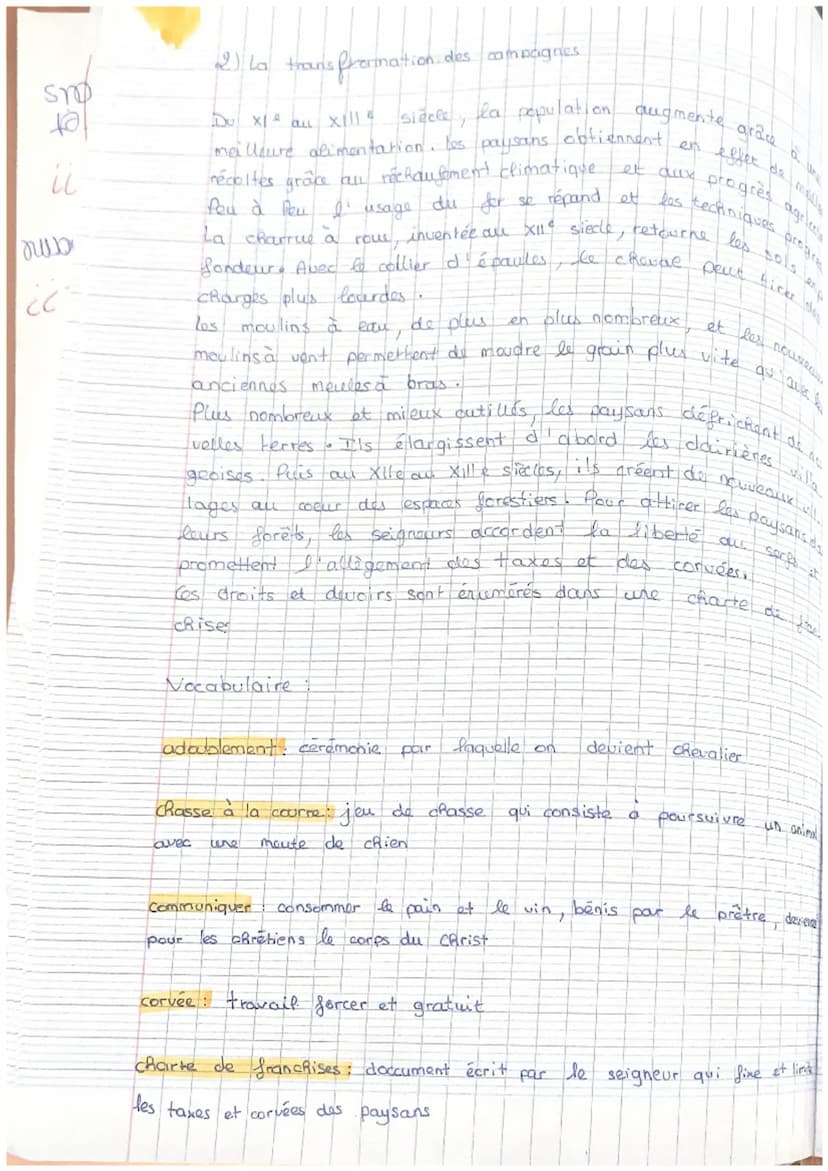 2) La transformation des campagnes
Du XIe au XIIIe siècle, la population augmente grâce à une
meilleure alimentation. Les paysans obtiennent en effet de
récoltes grâce au réchaufement climatique et aux progrès
Peu à Peu l'usage du fer se répand et les techniques
La charrue à roue, inventée au XIIe siècle, retourne les sols en
fondeur. Avec le collier d'épaules, le cheval peut tirer des
charges plus lourdes.
Les moulins à eau, de plus en plus nombreux, et les nouveaux
moulins à vent permettent de moudre le grain plus vite qu'avec les
anciennes meules à bras.
Plus nombreux et mieux outillés, les paysans défrichent de
velles terres. Ils élargissent d'abord les clairières villa
geoises. Puis au XIIe au XIIIe siècles, ils créent de nouveaux vil
lages au coeur des espaces forestiers. Pour attirer les paysans
leurs forêts, les seigneurs accordent la liberté au serfs et
promettent l'allègement des taxes et des corvées.
Ces droits et devoirs sont énumérés dans une charte de
chises
Vocabulaire :
adoublement : cérémonie par laquelle on devient chevalier
Chasse à la courre : jeu de chasse qui consiste à poursuivre un animal
avec une meute de chien
Communiquer : consommer le pain et le vin, bénis par le prêtre,
pour les chrétiens le corps du Christ
corvée : travail forcer et gratuit
Charte de franchises : doccument écrit par le seigneur qui fixe et
les taxes et corvées des paysans